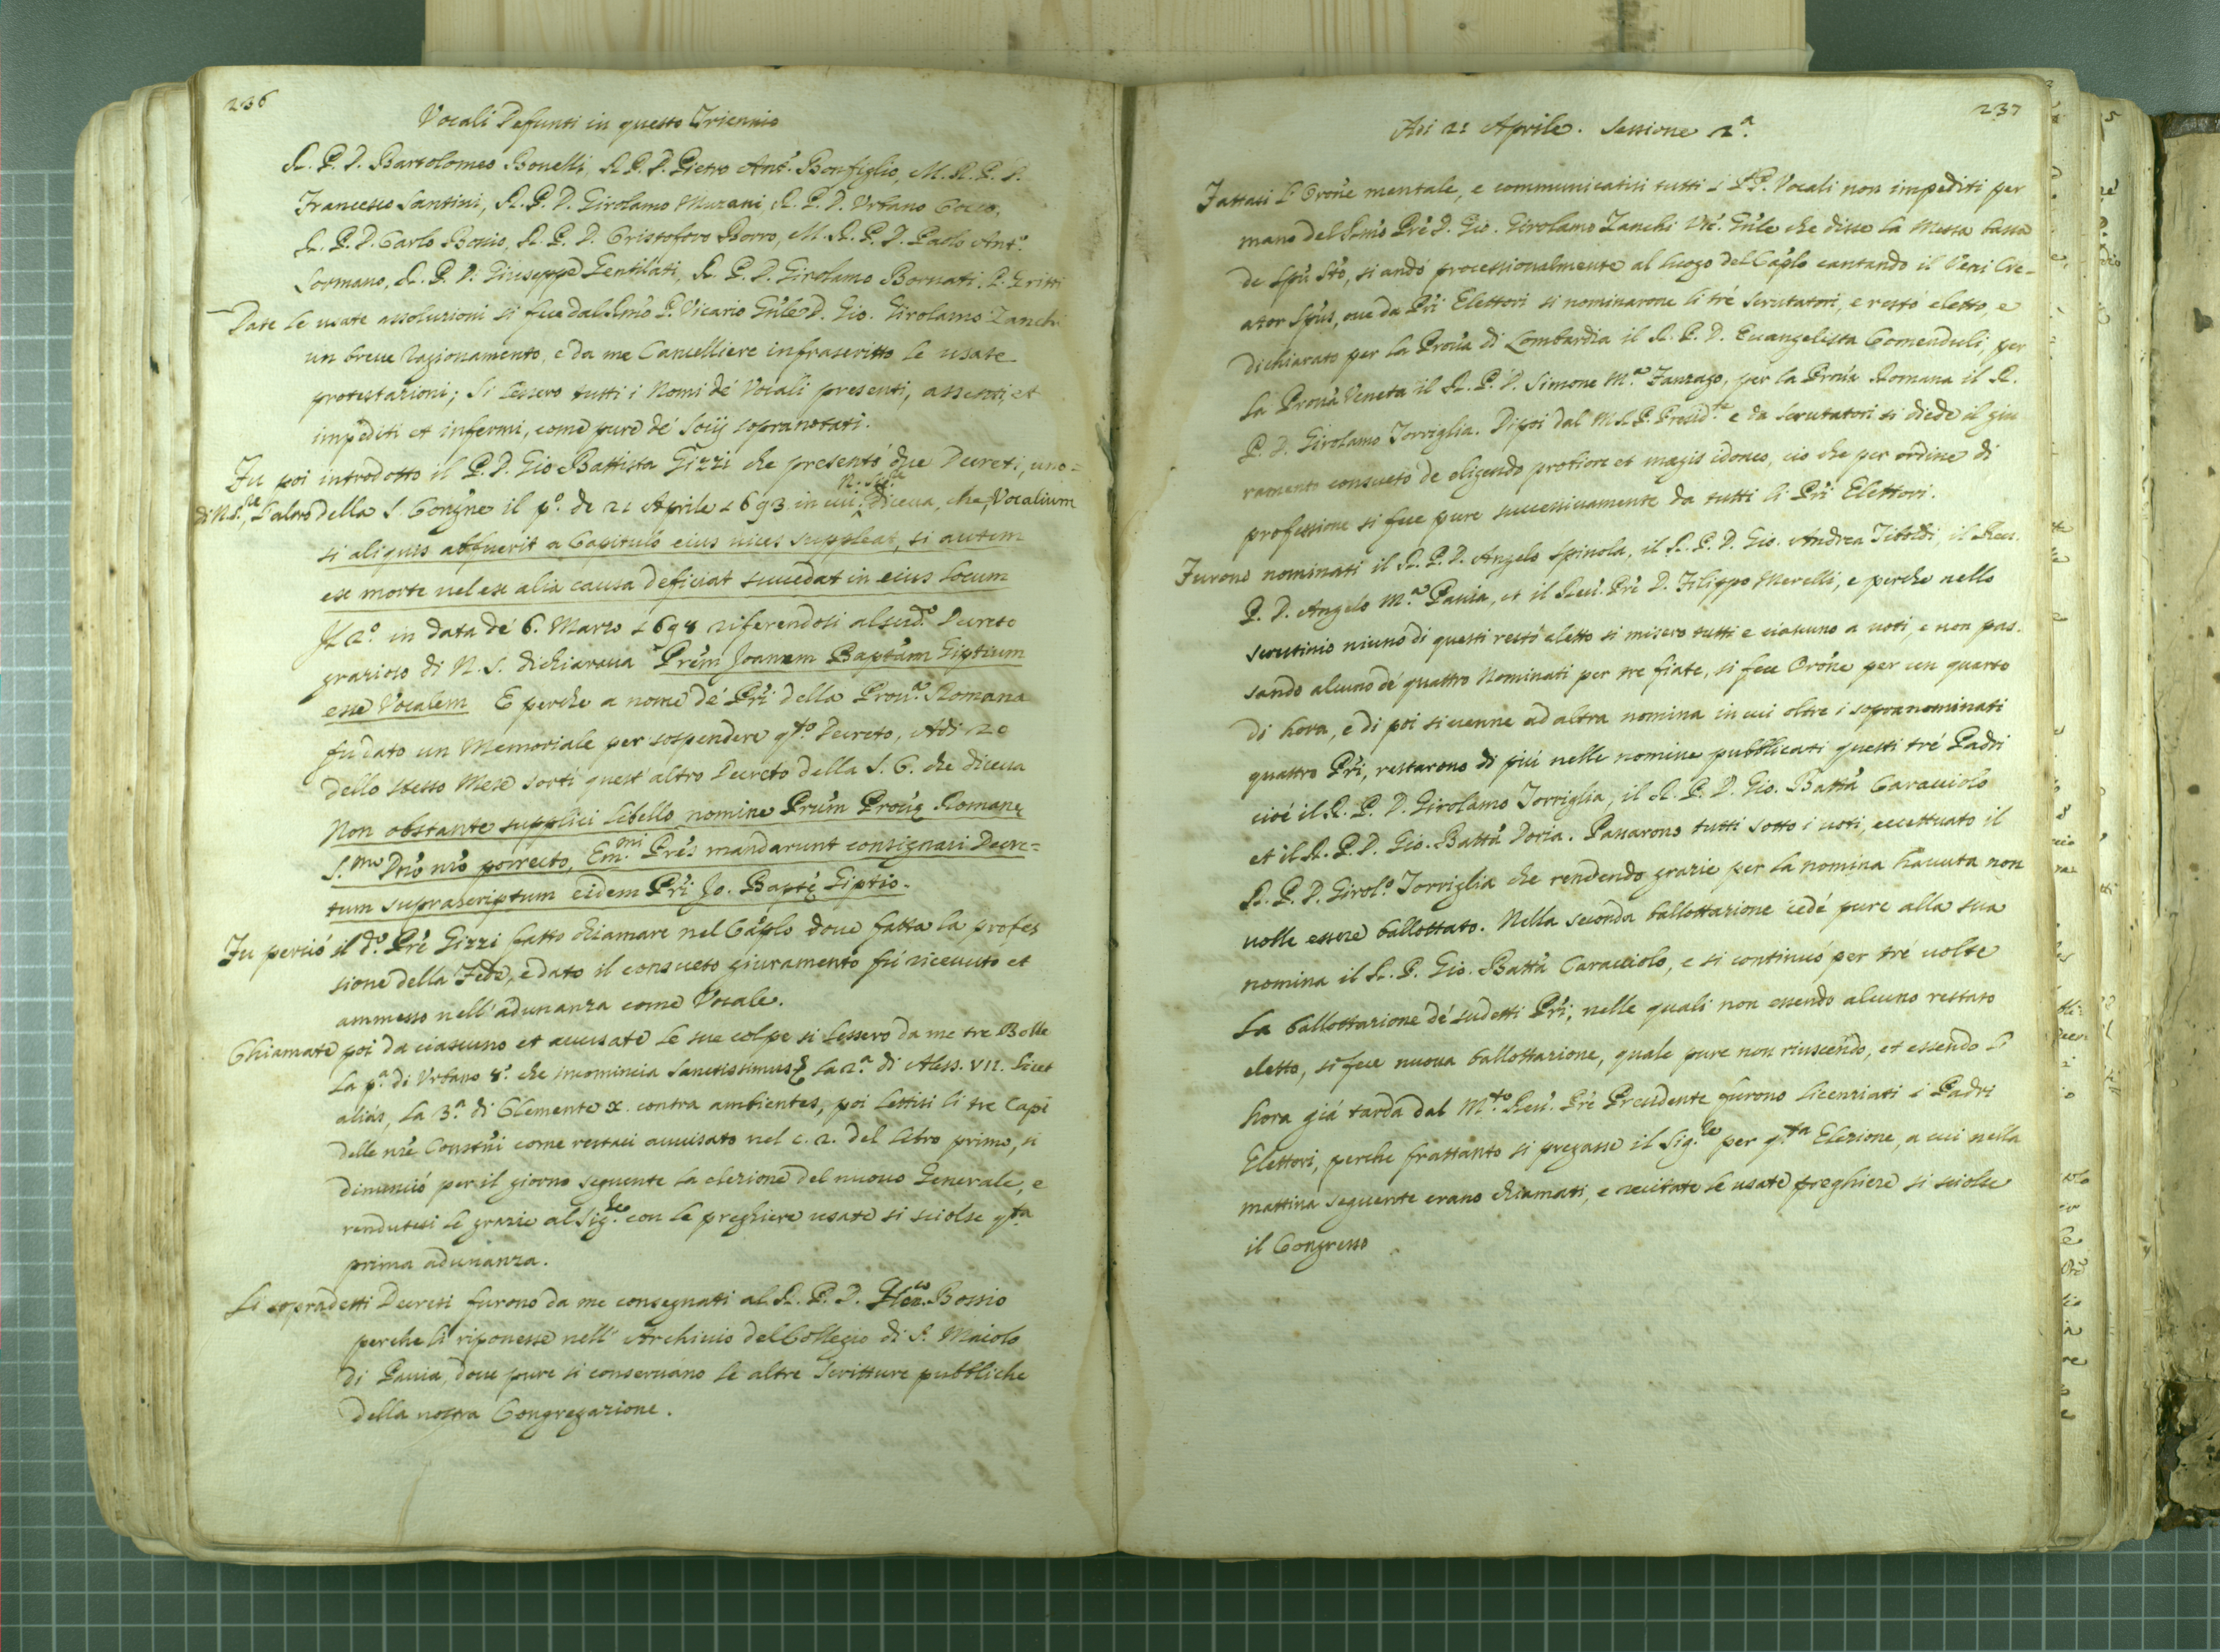 236
Vocali Defunti in questo Triennio
R. P. D. Bartolomeo Bonelli, R. P. D. Pietro Ant.º Bonfiglio, M. R. P. D.
Francesco Santini, R. P. D. Girolamo Murani, R. P. D. Urbano Cocco,
R. P. D. Carlo Bosio, R. P. D. Cristoforo Borro, M. R. P. D. Paolo Ant.º
Sormano, R. P. D. Giuseppe Gentilati, R. P. D. Girolamo Bornati. P. Gritti
Date le usate assoluzioni si fece dal Rmo P. Vicario Gnle D. Gio. Girolamo Zanchi
un breve ragionamento, e da me Cancelliere infrascritto le usate
protestazioni; Si lessero tutti i Nomi de' Vocali presenti, assenti, et
impediti et infermi, come pure de' Socij sopranotati.
Fu poi introdotto il P. D. Gio Battista Gizzi che presentò due Decreti, uno=
di N. S.re, l'altro della S. Congne il pº. de 21 Aprile 1693 in cui N. Sig.re diceva, che, Vocalium
si aliquis abfuerit a Capitulo eius vices suppleat, si autem
ex morte vel ex alia causa deficiat succedat in eius locum
Il 2º. in data de' 6. Marzo 1698 riferendosi al sud.º Decreto
grazioso di N. S. dichiarava Prem Joannem Baptam Giptium
esse Vocalem E perche a nome de' Pri della Prov.a Romana
fu dato un Memoriale per sospendere q.to Decreto, Adi 20
dello stesso Mese sortì quest'altro Decreto della S. C. che diceva
Non obstante supplici libello nomine Prum Provę Romanę
S.mo Dno nro porrecto, Em.mi Pres mandarunt consignari Decre=
tum suprascriptum eidem Pri Jo. Baptę Giptio.
Fu perciò il dº. Pre Gizzi fatto chiamare nel Caplo dove fatta la profes
sione della Fede, e dato il consueto giuramento fù ricevuto et
ammesso nell'adunanza come Vocale.
Chiamate poi da ciascuno et accusate le sue colpe si lessero da me tre Bolle
La pª. di Urbano 8º. che incomincia Sanctissimus, La 2ª di Aless. VII. Licet
alias, La 3ª. di Clemente X. contra ambientes, poi lettisi li tre Capi
delle nre Constni come restasi avvisato nel c. 2. del Libro primo, si
dinunciò per il giorno seguente la elezione del nuovo Generale, e
rendutesi le grazie al Sig.re con le preghiere usate si sciolse q.ta
prima adunanza.
Li sopradetti Decreti furono da me consegnati al R. P. D. Bossio
perche li riponesse nell'Archivio del Collegio di S. Maiolo
di Pavia, dove pure si conservano le altre Scritture pubbliche
della nostra Congregazione.
237
Adi 21 Aprile. Sessione 2ª.
Fattasi l'Orone mentale, e communicatisi tutti i PP. Vocali non impediti per
mano del Rmo Pre D. Gio. Girolamo Zanchi Vic. Gnle che disse la Messa bassa
de Spu Sto, si andò processionalmente al luogo del Caplo cantando il Veni Cre-
ator Spus, ove da Pri Elettori si nominarono li trè Scrutatori, e restò eletto, e
dichiarato per la Prova di Lombardia il R. P. D. Evangelista Comenduli, per
La Prova Veneta il R. P. D. Simone M.a Zanzago, per la Prova Romana il R.
P. D. Girolamo Torriglia. Dipoi dal M. R. P. Presid.te e da Scrutatori si diede il giu
ramento consueto de eligendo protiore et magis idoneo, ciò che per ordine di
professione si fece pure successivamente da tutti li Pri Elettori.
Furono nominati il R. P. D. Angelo Spinola, il R. P. D. Gio. Andrea Tiboldi, il Rev.
P. D. Angelo M.a Pavia, et il Rev. Pre D. Filippo Merelli, e perche nello
scrutinio niuno di questi restò eletto si misero tutti e ciascuno a voti, e non pas-
sando alcuno de' quattro Nominati per tre fiate, si fece Orone per un quarto
di hora, e di poi si venne ad altra nomina in cui oltre i sopranominati
quattro Pri, restarono di più nelle nomine pubblicati questi trè Padri
cioè il R. P. D. Girolamo Torriglia, il R. P. D. Gio. Batta Caracciolo
et il R. P. D. Gio. Batta Doria. Passarono tutti sotto i voti, eccettuato il
R. P. D. Girol.º Torriglia che rendendo grazie per la nomina havuta non
volle essere ballottato. Nella seconda ballottazione cedè pure alla sua
nomina il R. P. Gio. Batta Caracciolo, e si continuò per trè volte
La ballottazione de' sudetti Pri, nelle quali non essendo alcuno restato
eletto, si fece nuova ballottazione, quale pure non riuscendo, et essendo l'
hora già tarda dal M.to Rev. Pre Presidente furono licenziati i Padri
Elettori, perche frattanto si pregasse il Sig.re per q.ta Elezione, a cui nella
mattina seguente erano chiamati, e recitate le usate preghiere si sciolse
il Congresso